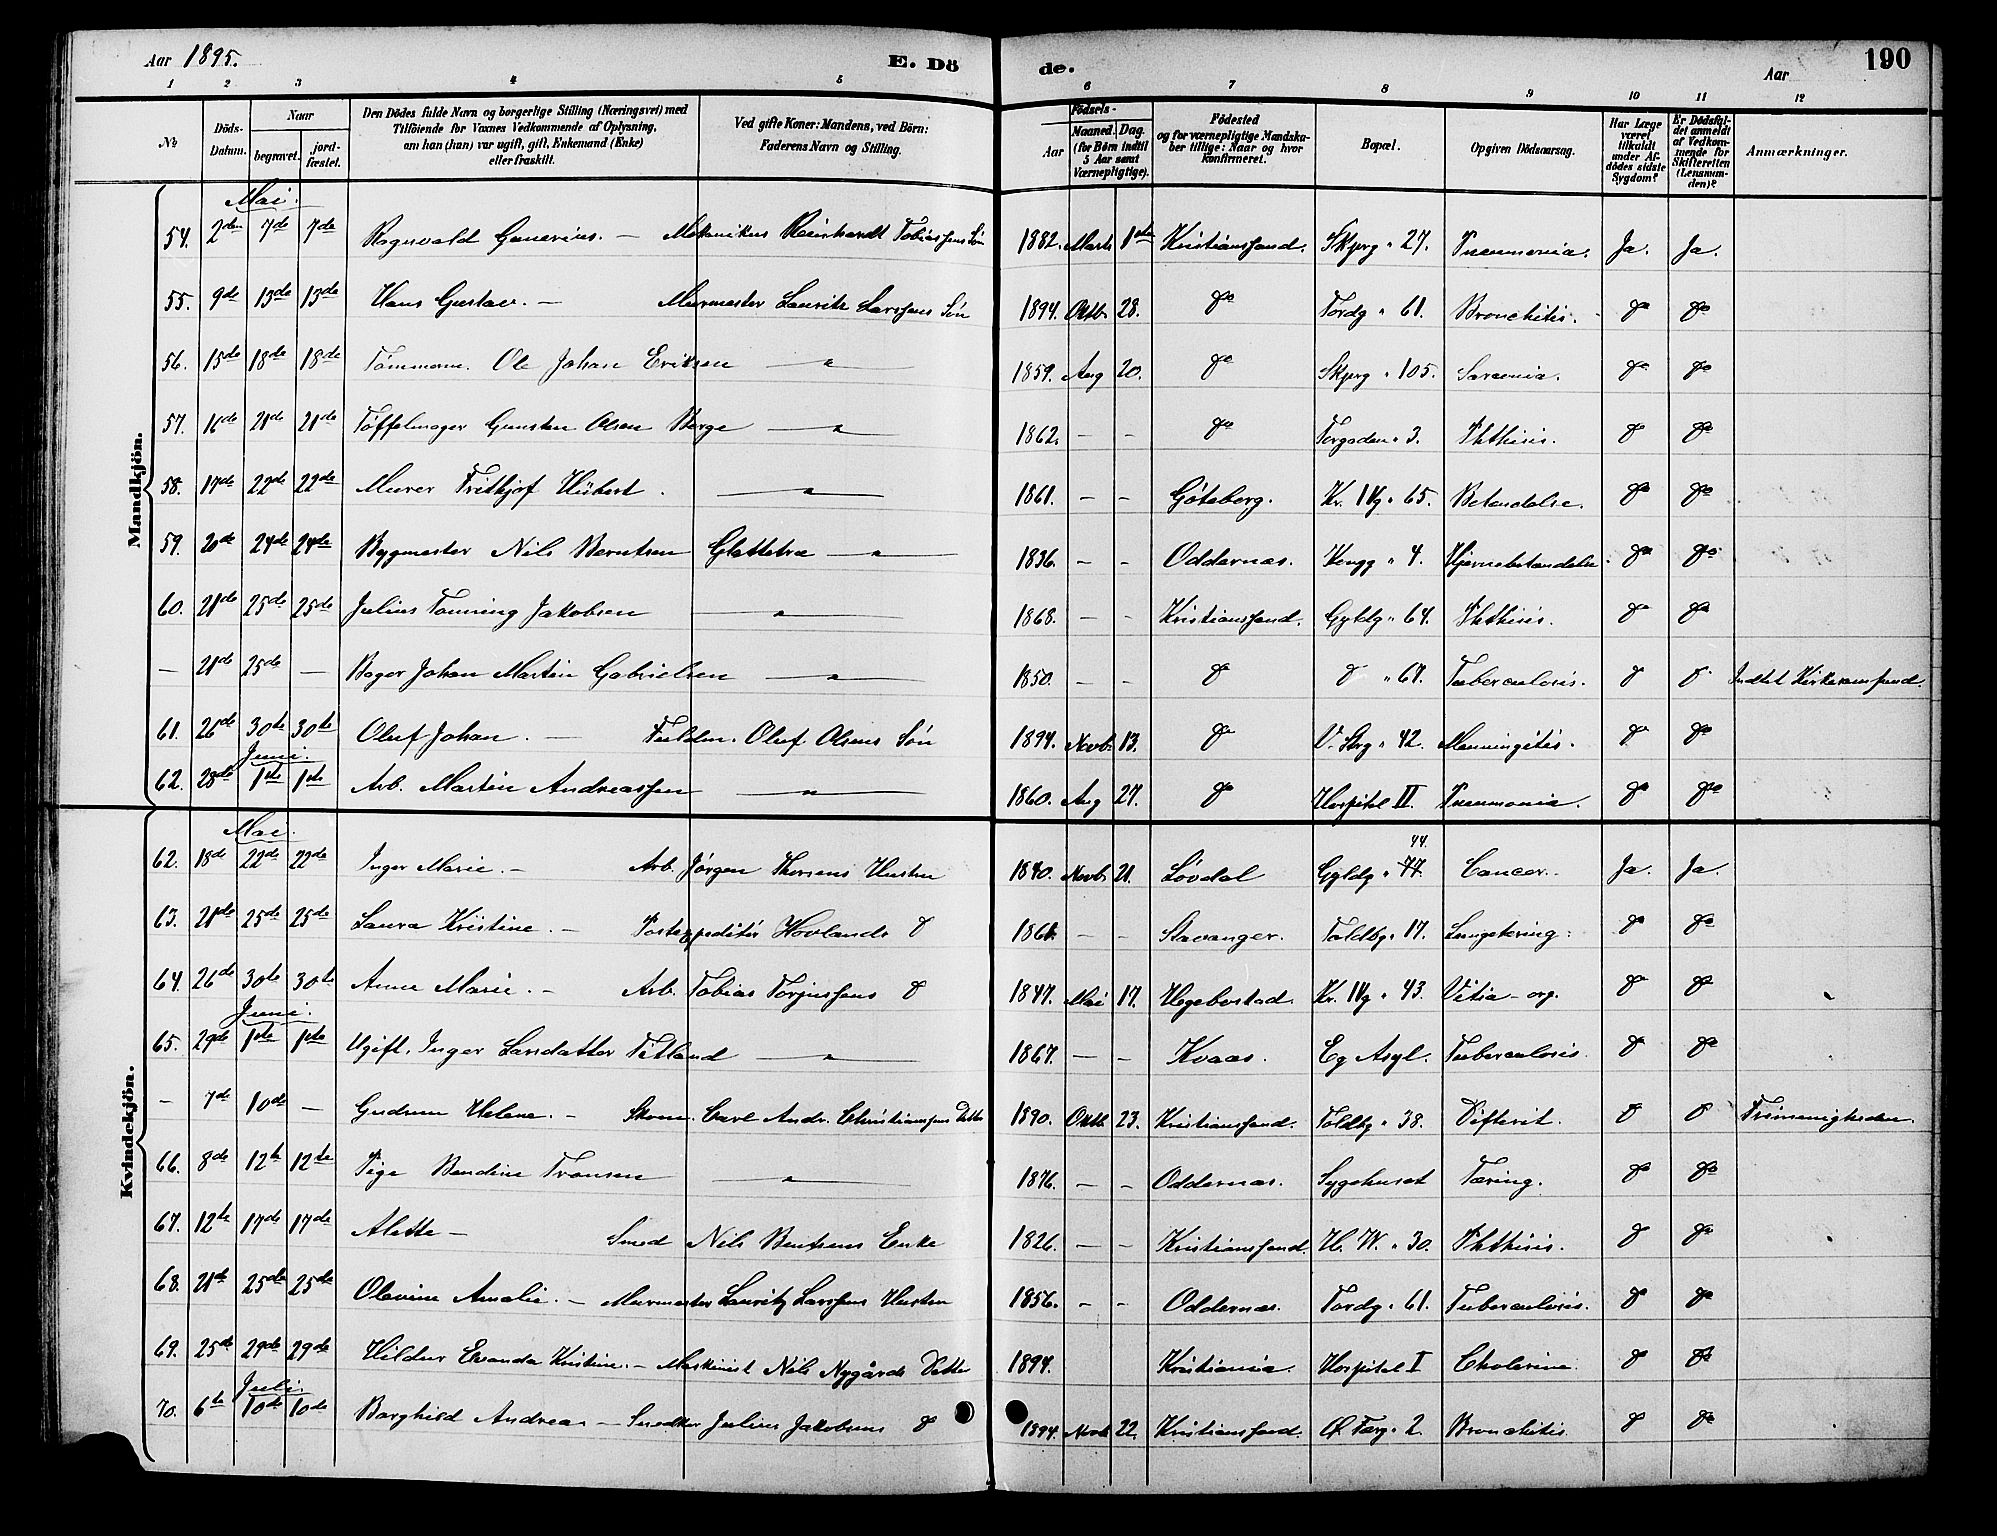 Aar 1895. E. Dö de. Aar 190
1 2 3 4 5 6 7 8 9 10 11 12
№ Döds-Datum. Naar begravet. jordfæstet. Den Dödes fulde Navn og borgerlige Stilling (Næringsvei) med Tilföiende for Voxnes Vedkommende af Oplysning, om han (hun) var ugift, gift, Enkemand (Enke) eller fraskilt. Ved gifte Koner: Mandens, ved Börn: Faderens Navn og Stilling. Födsels- Aar Maaned. Dag. (for Börn indtil 5 Aar samt Værnepligtige). Födested og for værnepligtige Mandskaber tillige: Naar og hvor konfirmeret. Bopæl. Opgiven Dödsaarsag. Har Læge været tilkaldt under Afdödes sidste Sygdom? Er Dödsfaldet anmeldt af Vedkommende for Skifteretten (Lensmanden)? Anmærkninger.
Mandkjön.
Mai.
54. 2den 7de 7de Ragnvald Gunerius. — Mekanikus Reinhardt Tobiassens Søn 1882. Marts 1ste Kristianssand. Skjprg " 27. Pneumonia. Ja. Ja.
55. 9de 13de 13de Hans Gustav. — Murmester Lauritz Larssens Søn 1894. Oktb. 28. do Tordg " 61. Bronchitis. do do
56. 15de 18de 18de Tømmerm. Ole Johan Eriksen — " — 1859. Aug 20. do Skjprg " 105. do do
57. 16de 21de 21de Tøffelmager Gunsten Olsen Berge — " — 1862. — — do Torgaden " 3. Phthisis. do do
58. 17de 22de 22de Murer Fritkjof Hübert. — " — 1861. — — Göteborg. Kr. IVg " 65. Betændelse. do do
59. 20de 24de 24de Bygmester Nils Berntsen Glattetræ — " — 1836. — — Oddernæs. Kongg " 4. Hjernebetændelse. do do
60. 21de 25de 25de Julius Tønning Jakobsen — " — 1868. — — Kristianssand. Gyldg " 64. Phthisis. do do
— 21de 25de — Bager Johan Martin Gabrielsen — " — 1850. — — do do " 67. Tuberculosis. do do Indtil Kirkesamfund.
61. 26de 30te 30te Oluf Johan. — Fuldm. Oluf Olsens Søn 1894. Novb. 13. do V. Strg " 42. Menningitis. do do
Juni.
62. 28de 1ste 1ste Arb. Martin Andreassen — " — 1860. Aug 27. do Hospital II. Pneumonia. do do
Kvindekjön.
Mai.
62. 18de 22de 22de Inger Marie. — Arb. Jørgen Thorsens Hustru 1840. Novb. 21. Løvdal Gyldg " 77. 44. Cancer. Ja. Ja.
63. 21de 25de 25de Laura Kristine. — Postexpeditør Hovlands do 1861. — — Stavanger. Toldbg " 17. Lungetæring. do do
64. 26de 30te 30te Anne Marie. — Arb. Tobias Torjussens do 1847. Mai 17. Hegebostad. Kr. IVg " 43. Vitia - org. do do
Juni.
65. 29de 1ste 1ste Ugift, Inger Larsdatter Fitland — " — 1867. — — Kvaas. Eg Asyl. Tuberculosis. do do
— 7de 10de — Gudrun Helene. — Skom. Carl Andr. Christianssens Datter 1890. Oktb. 23. Kristianssand. Toldbg " 38. Difterit. do do Frimenigheden.
66. 8de 12te 12te Pige Bendine Tronsen — " — 1876. — — Oddernæs. Sygehuset Tæring. do do
67. 12te 17de 17de Alette — Smed Nils Bentsens Enke 1826. — — Kristianssand. H. W. " 30. Phthisis. do do
68. 21de 25de 25de Olevine Amalie. — Murmester Lauritz Larssens Hustru 1856. — — Oddernæs. Tordg " 61. Tuberculosis. do do
69. 25de 29de 29de Hildur Evanda Kristine. — Maskinist Nils Nygårds Datter 1894. Kristiania. Hospital I Cholerine. do do
Juli.
70. 6te 10de 10de Borghild Andrea — Snedker Julius Jakobsens do 1894. Novb. 22. Kristianssand. Ø. Torg " 2. Bronchitis. do do